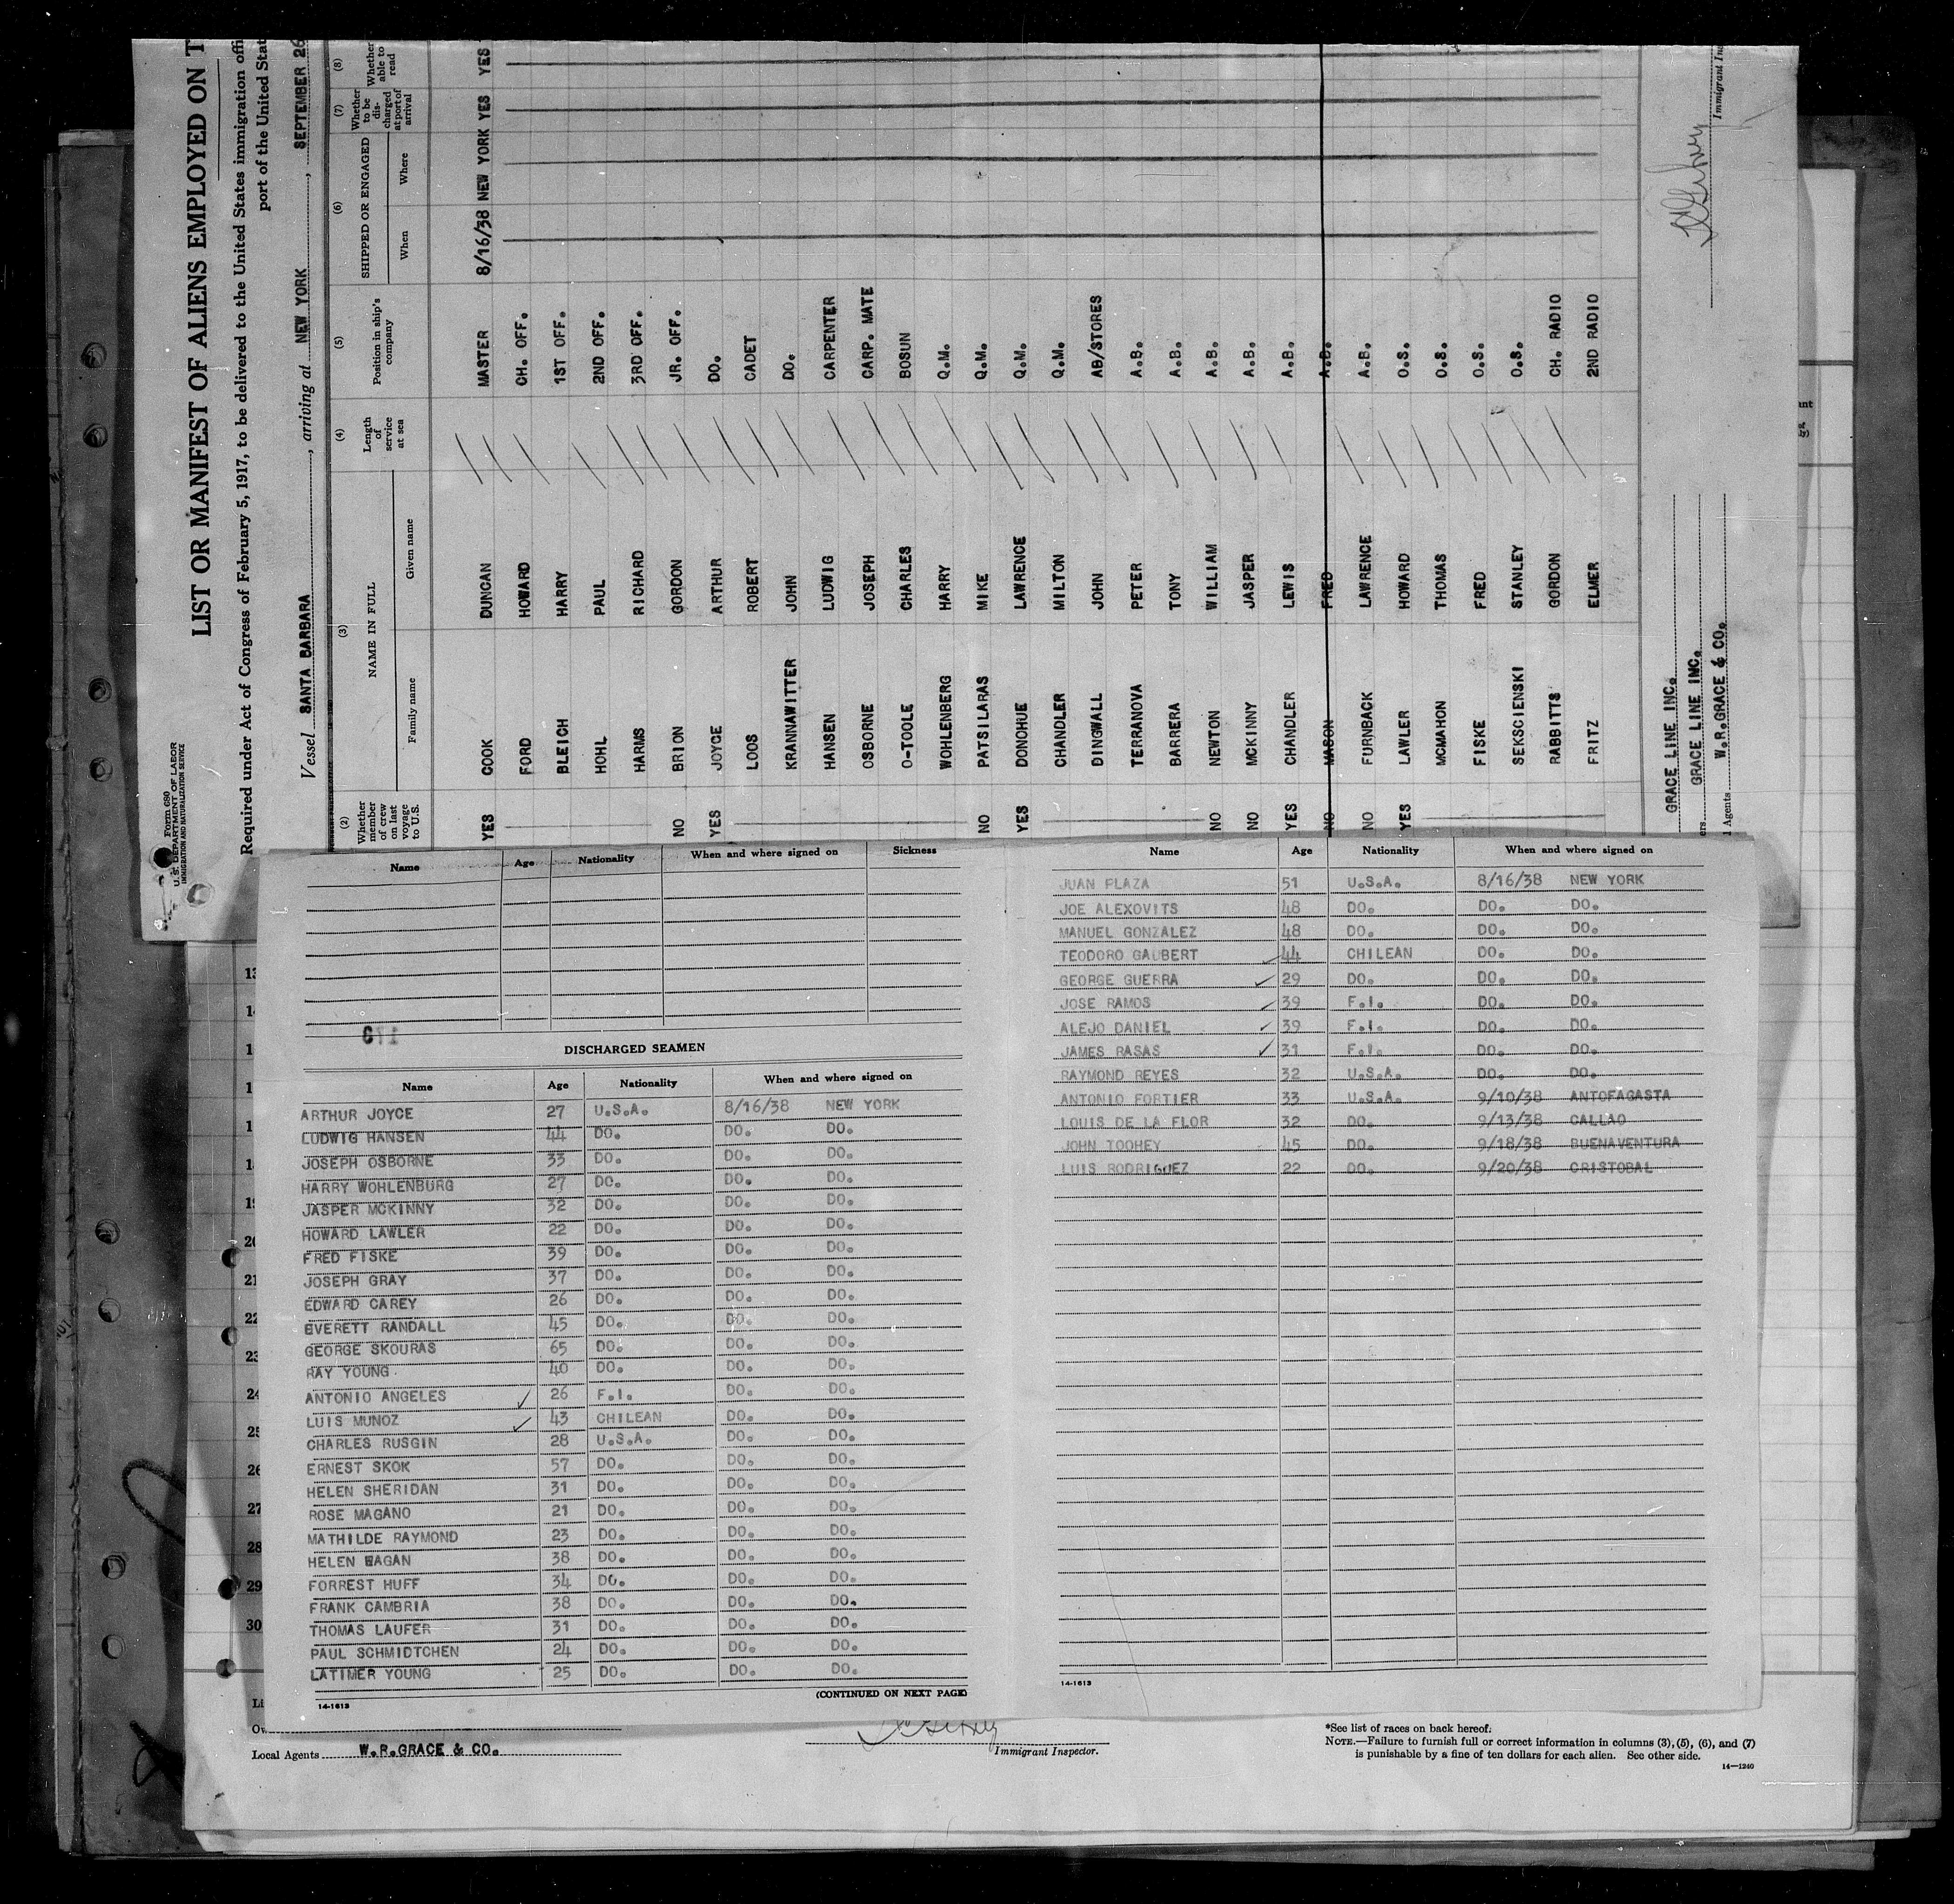 Form 680
U.S. DEPARTMENT OF LABOR
IMMIGRATION AND NATURALIZATION SERVICE
LIST OR MANIFEST OF ALIENS EMPLOYED ON T
Required under Act of Congress of February 5, 1917, to be delivered to the United States immigration offi
port of the United Stat
Vessel SANTA BARBARA, arriving at NEW YORK, SEPTEMBER 26
(2) Whether member of crew on last voyage to U.S. (3) NAME IN FULL Family name Given name (4) Length of service at sea (5) Position in ship's company (6) SHIPPED OR ENGAGED When Where (7) Whether to be discharged at port of arrival (8) Whether able to read
YES COOK DUNCAN MASTER 8/16/38 NEW YORK YES YES
FORD HOWARD CH. OFF.
BLEICH HARRY 1ST OFF.
HOHL PAUL 2ND OFF.
HARMS RICHARD 3RD OFF.
NO BRION GORDON JR. OFF.
YES JOYCE ARTHUR DO.
LOOS ROBERT CADET
KRANNAWITTER JOHN DO.
HANSEN LUDWIG CARPENTER
OSBORNE JOSEPH CARP. MATE
O-TOOLE CHARLES BOSUN
WOHLENBERG HARRY Q.M.
NO PATSILARAS MIKE Q.M.
YES DONOHUE LAWRENCE Q.M.
CHANDLER MILTON Q.M.
DINGWALL JOHN AB/STORES
TERRANOVA PETER A.B.
BARRERA TONY A.B.
NO NEWTON WILLIAM A.B.
NO MCKINNY JASPER A.B.
YES CHANDLER LEWIS A.B.
NO MASON FRED A.B.
NO FURNBACK LAWRENCE A.B.
YES LAWLER HOWARD O.S.
MCMAHON THOMAS O.S.
FISKE FRED O.S.
SEKSCIENSKI STANLEY O.S.
RABBITTS GORDON CH. RADIO
FRITZ ELMER 2ND RADIO
GRACE LINE INC.
GRACE LINE INC.
W.R.GRACE & CO.
Agents
Immigrant
Name Age Nationality When and where signed on Sickness
DISCHARGED SEAMEN
Name Age Nationality When and where signed on
ARTHUR JOYCE 27 U.S.A. 8/16/38 NEW YORK
LUDWIG HANSEN 44 DO. DO. DO.
JOSEPH OSBORNE 33 DO. DO. DO.
HARRY WOHLENBURG 27 DO. DO. DO.
JASPER MCKINNY 32 DO. DO. DO.
HOWARD LAWLER 22 DO. DO. DO.
FRED FISKE 39 DO. DO. DO.
JOSEPH GRAY 37 DO. DO. DO.
EDWARD CAREY 26 DO. DO. DO.
EVERETT RANDALL 45 DO. DO. DO.
GEORGE SKOURAS 65 DO. DO. DO.
RAY YOUNG 40 DO. DO. DO.
ANTONIO ANGELES 26 F.I. DO. DO.
LUIS MUNOZ 43 CHILEAN DO. DO.
CHARLES RUSGIN 28 U.S.A. DO. DO.
ERNEST SKOK 57 DO. DO. DO.
HELEN SHERIDAN 31 DO. DO. DO.
ROSE MAGANO 21 DO. DO. DO.
MATHILDE RAYMOND 23 DO. DO. DO.
HELEN WAGAN 38 DO. DO. DO.
FORREST HUFF 34 DO. DO. DO.
FRANK CAMBRIA 38 DO. DO. DO.
THOMAS LAUFER 31 DO. DO. DO.
PAUL SCHMIDTCHEN 24 DO. DO. DO.
LATIMER YOUNG 25 DO. DO. DO.
14-1613 (CONTINUED ON NEXT PAGE)
Name Age Nationality When and where signed on
JUAN PLAZA 51 U.S.A. 8/16/38 NEW YORK
JOE ALEXOVITS 48 DO. DO. DO.
MANUEL GONZALEZ 48 DO. DO. DO.
TEODORO GAUBERT 44 CHILEAN DO. DO.
GEORGE GUERRA 29 DO. DO. DO.
JOSE RAMOS 39 F.I. DO. DO.
ALEJO DANIEL 39 F.I. DO. DO.
JAMES RASAS 31 F.I. DO. DO.
RAYMOND REYES 32 U.S.A. DO. DO.
ANTONIO FORTIER 33 U.S.A. 9/10/38 ANTOFAGASTA
LOUIS DE LA FLOR 32 DO. 9/13/38 CALLAO
JOHN TOOHEY 45 DO. 9/18/38 BUENAVENTURA
LUIS RODRIGUEZ 22 DO. 9/20/38 CRISTOBAL
14-1613
13
19
20
21
22
23
24
25
26
27
28
29
30
Local Agents W.R.GRACE & CO.
Immigrant Inspector.
*See list of races on back hereof.
NOTE.—Failure to furnish full or correct information in columns (3), (5), (6), and (7)
is punishable by a fine of ten dollars for each alien. See other side.
14—1240